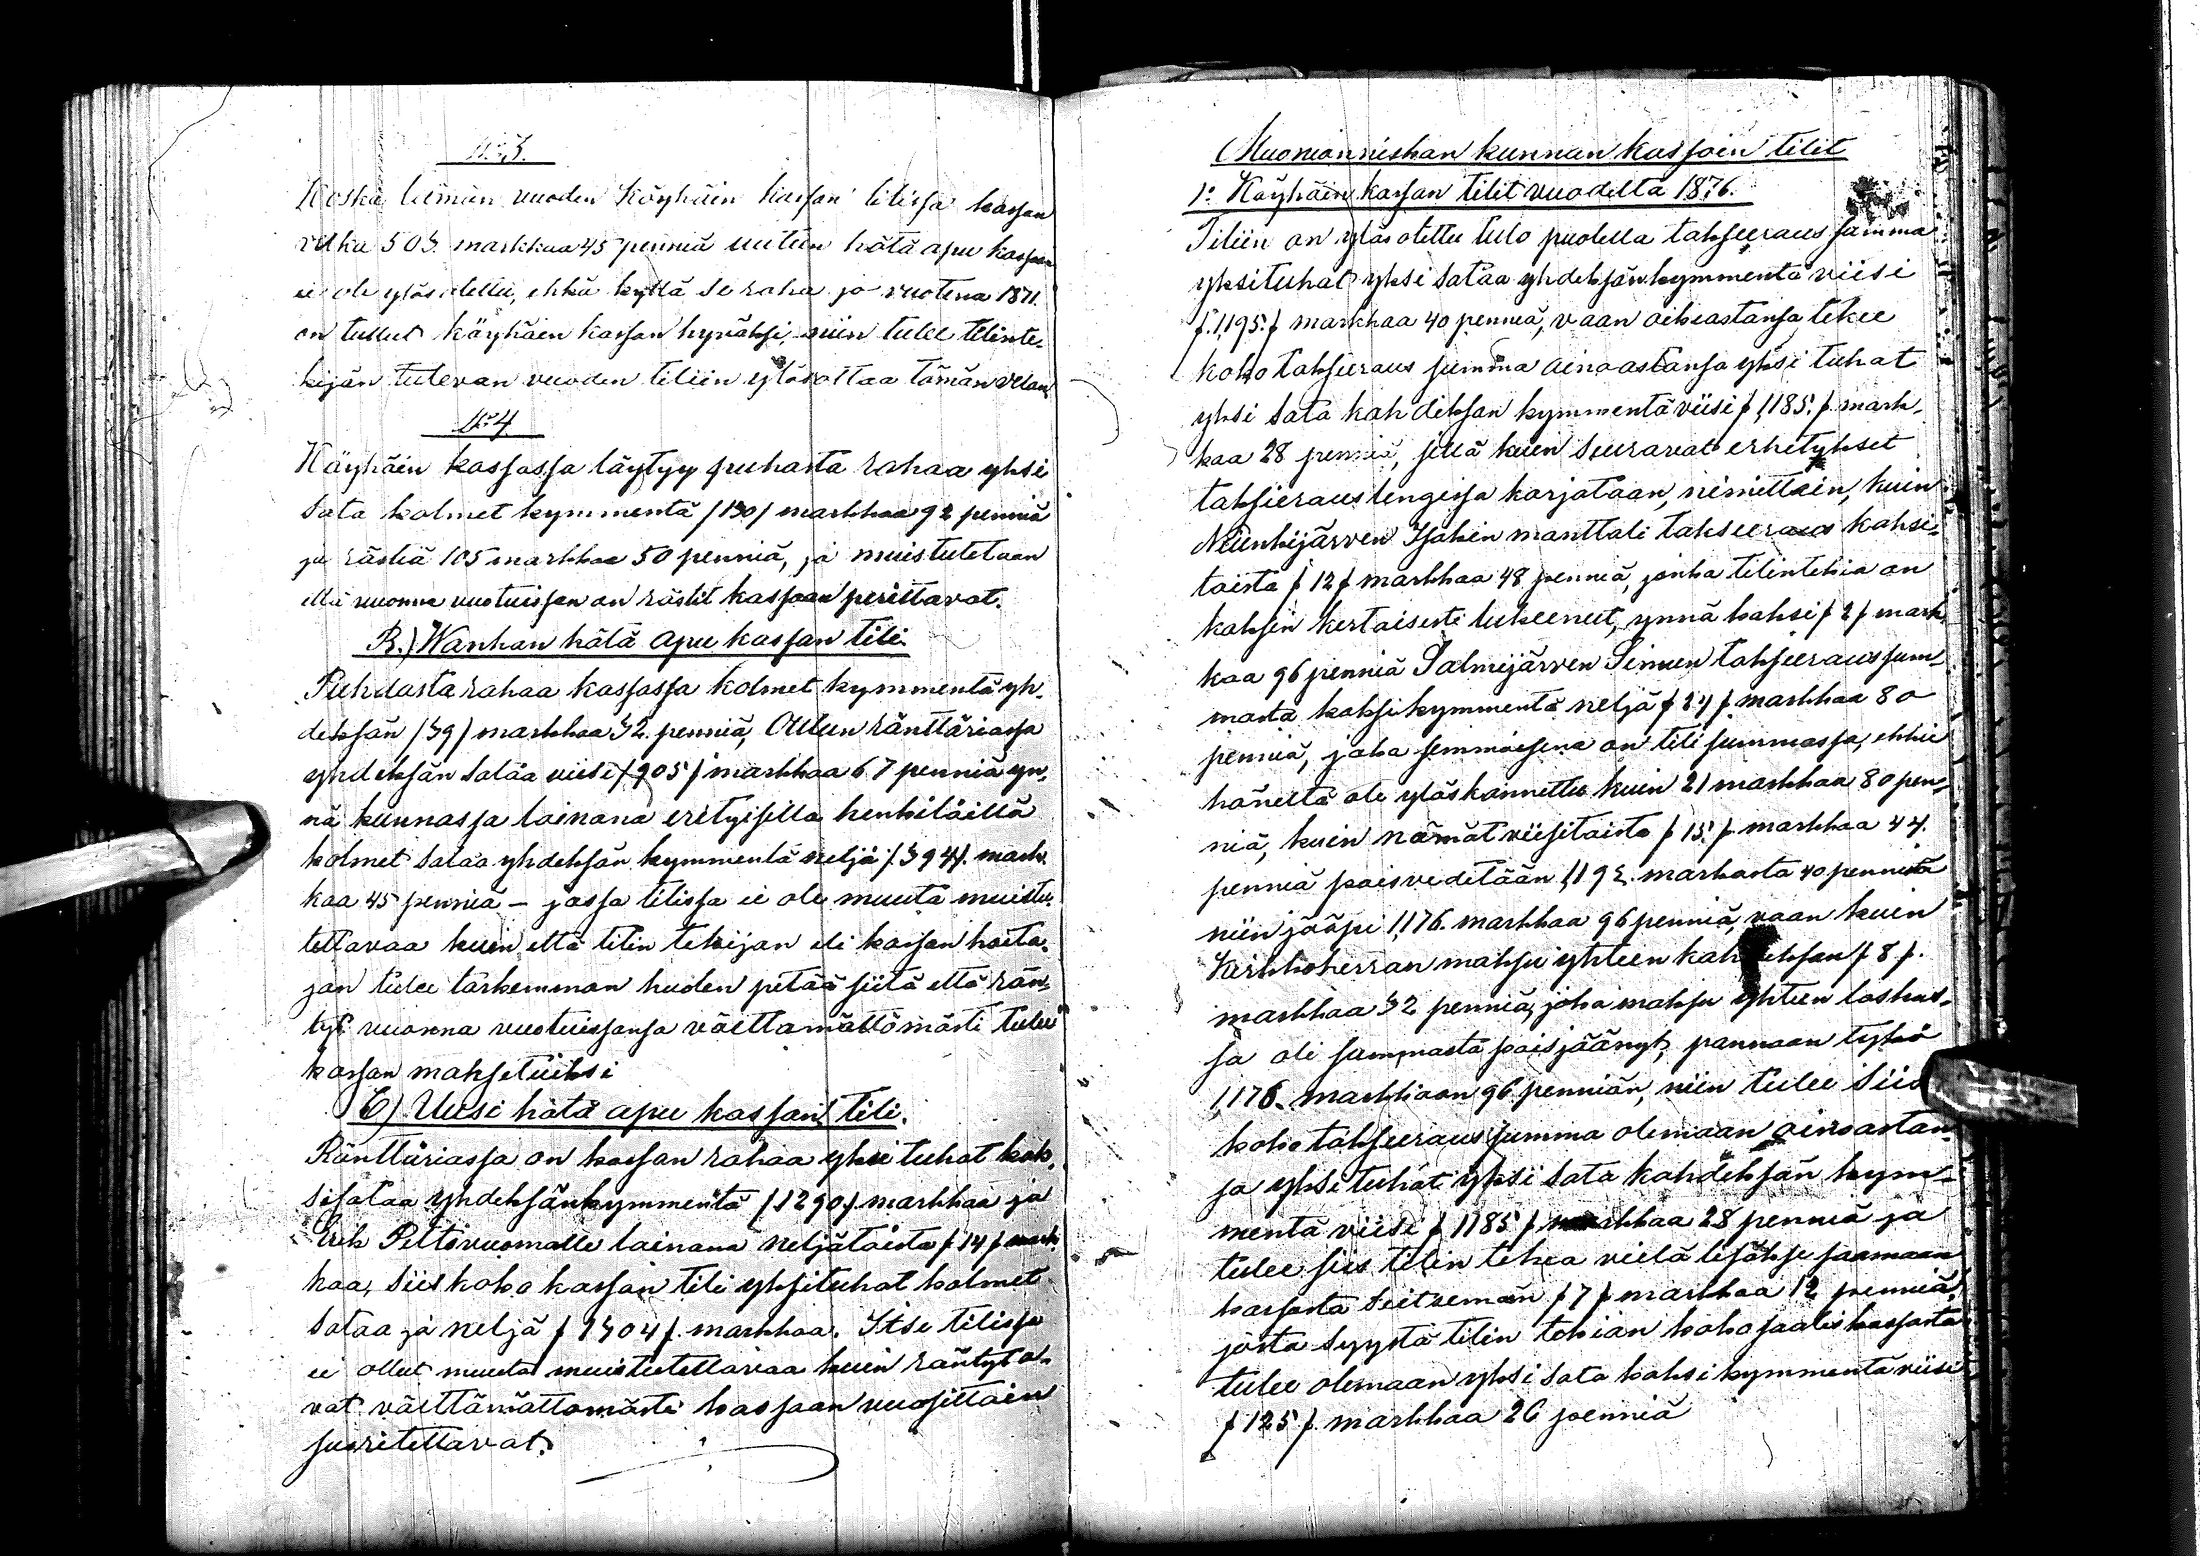 N:o 3.
Koska tämän vuoden Köyhäin kassan tilissä kassan
velka 503. markkaa 45 penniä uuteen hätä apu kassaan
ei ole ylösotettu, ehkä kyllä se raha jo vuotena 1871.
on tullut köyhäin kassan hyväksi, niin tulee tilinte-
kijän tulevan vuoden tiliin ylösottaa tämän velan.
N:o 4.
Köyhäin kassassa löytyy puhasta rahaa yksi
sata kolmet kymmentä /130/ markkaa 92 penniä
ja rästiä 105 markkaa 50 penniä, ja muistutetaan
että vuonna vuotuissan on rästit kassaan perittavat.
B.) Wanhan hätä apu kassan tili.
Puhdasta rahaa kassassa kolmet kymmentä yh-
deksän /39/ markkaa 32. penniä, Oulun ränttäriassa
yhdeksän sataa viisi /905/ markkaa 67 penniä yn-
nä kunnassa lainana erityisillä henkilöillä
kolmet sataa yhdeksän kymmentä neljä /394/. mark-
kaa 45 penniä – jossa tilissä ei ole muuta muistu-
tettavaa kuin että tilin tekijan eli kassan hoita-
jan tulee tarkemman huolen pitää siitä että rän-
tyt vuonna vuotuissansa välttamättömästi tulee
kassan maksetuiksi
C) Uusi hätä apu kassan tili.
Ränttäriassa on kassan rahaa yksi tuhat kak-
sisataa yhdeksänkymmentä /1290/ markkaa ja
Erik Peltovuomalle lainana neljätoista /14/ mark-
kaa, siis koko kassan tili yksituhat kolmet
sataa ja neljä /1304/. markkaa. Itse tilissä
ei ollut muuta muistutettavaa kuin räntyt o-
vat välttämättomästi kassaan vuosittain
suoritettavat.
Muonionniskan kunnan kassoin tilit
1:o Köyhäin kassan tilit vuodelta 1876.
Tiliin on ylös otettu tulo puolella takseeraus summa
yksituhat yksi sataa yhdeksänkymmentä viisi
/.1,195./ markkaa 40 penniä, vaan oikeastansa tekee
koko takseeraus summa ainoastansa yksi tuhat
yksi sata kahdeksan kymmentä viisi /1,185./. mark-
kaa 28 penniä, sillä kuin seuraavat erhetykset
takseerauslengissa korjataan, nimittäin, kuin
Neienkijärven Isakin manttali takseeraus kaksi-
toista /12/ markkaa 48 penniä, jonka tilintekiä on
kaksin kertaisesti lukeenut, ynnä kaksi /2/ mark-
kaa 96 penniä Salmijärven Simun takseeraussum-
masta kaksikymmentä neljä /24/. markkaa 80
penniä, joka semmoisena on tili summassa, ehkei
häneltä ole ylöskannettu kuin 21 markkaa 80 pen-
niä, kuin nämät viisitoista /15./. markkaa 44.
penniä poisvedetään 1,192. markasta 40 pennistä
niin jääpi 1,176. markkaa 96 penniä, vaan kuin
Kirkkoherran maksu yhteen kahdeksan /8/.
markkaa 32 penniä, joka maksu yhteen laskus-
sa oli summasta poisjäänyt, pannaan tykö
1,176. markkaan 96 penniän, niin tulee siis
koko takseeraus summa olemaan ainoastan-
sa yksi tuhat yksi sata kahdeksan kym-
mentä viisi /1185/ markkaa 28 penniä ja
tulee siis tilin tekiä vielä lisäksi saamaan
kassasta seitsemän /7/ markkaa 12 penniä,
josta syystä tilin tekian koko saatis kassasta
tulee olemaan yksi sata kaksi kymmentä viisi
/125/. markkaa 26 penniä